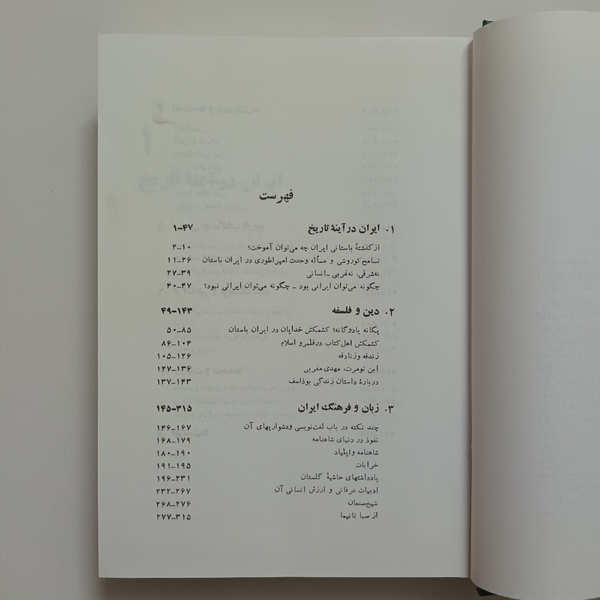 فهرست
۱. ایران در آینهٔ تاریخ ۱-۴۷
از گذشتهٔ باستانی ایران چه می‌توان آموخت؛ ۲-۱۰
تسامح کوروشی و مسأله وحدت امپراطوری در ایران باستان ۱۱-۲۶
نه‌شرقی، نه‌غربی-انسانی ۲۷-۳۹
چگونه می‌توان ایرانی بود - چگونه می‌توان ایرانی نبود؟ ۴۰-۴۷
۲. دین و فلسفه ۴۹-۱۴۳
یگانه یا دوگانه؛ کشمکش خدایان در ایران باستان ۵۰-۸۵
کشمکش اهل کتاب در قلمرو اسلام ۸۶-۱۰۴
زندقه و زنادقه ۱۰۵-۱۲۶
ابن تومرت، مهدی مغربی ۱۲۷-۱۳۶
دربارهٔ داستان زندگی بوذاسف ۱۳۷-۱۴۳
۳. زبان و فرهنگ ایران ۱۴۵-۳۱۵
چند نکته در باب لغت‌نویسی و دشواریهای آن ۱۴۶-۱۶۷
نفوذ در دنیای شاهنامه ۱۶۸-۱۷۹
شاهنامه و ایلیاد ۱۸۰-۱۹۰
خرابات ۱۹۱-۱۹۵
یادداشتهای حاشیهٔ گلستان ۱۹۶-۲۳۱
ادبیات عرفانی و ارزش انسانی آن ۲۳۲-۲۶۷
شیخ‌صنعان ۲۶۸-۲۷۶
از صبا تا نیما ۲۷۷-۳۱۵